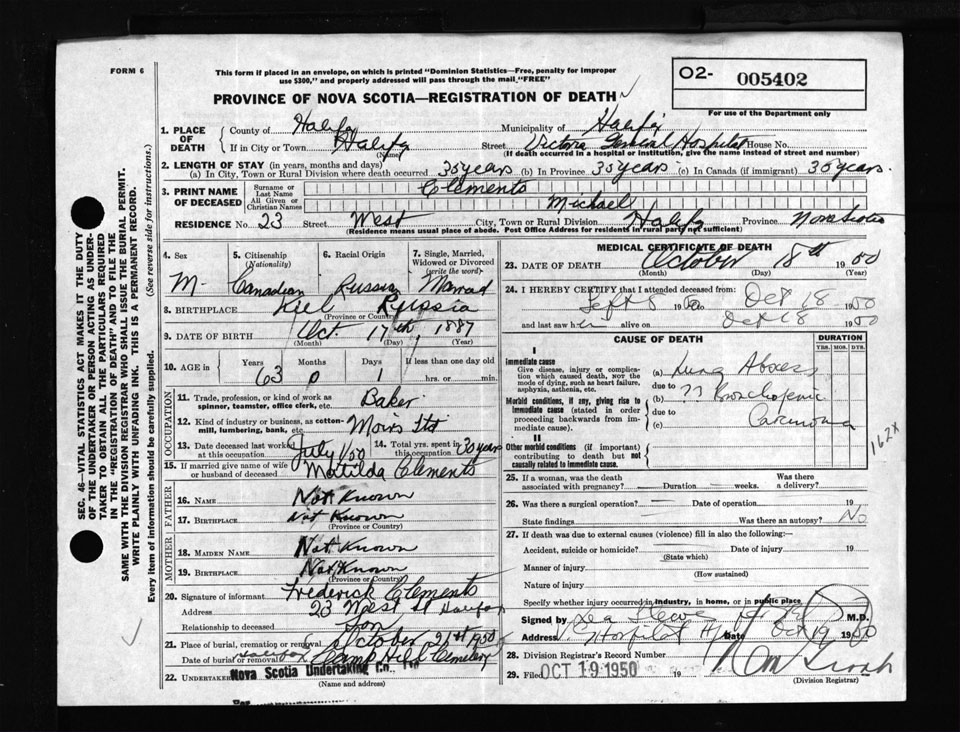 FORM 6
This form if placed in an envelope, on which is printed "Dominion Statistics—Free, penalty for improper
use $300," and properly addressed will pass through the mail "FREE"
O2- 005402
For use of the Department only
PROVINCE OF NOVA SCOTIA—REGISTRATION OF DEATH
1. PLACE OF DEATH
County of Halifax Municipality of Halifax
If in City or Town Halifax (Name) Street Victoria General Hospital House No.
(If death occurred in a hospital or institution, give the name instead of street and number)
2. LENGTH OF STAY (in years, months and days)
(a) In City, Town or Rural Division where death occurred 35 years (b) In Province 35 years (c) In Canada (if immigrant) 35 years.
3. PRINT NAME OF DECEASED
Surname or Last Name Clements
All Given or Christian Names Michael
RESIDENCE No. 23 Street West City, Town or Rural Division Halifax Province Nova Scotia
(Residence means usual place of abode. Post Office Address for residents in rural parts not sufficient)
4. Sex M
5. Citizenship (Nationality) Canadian
6. Racial Origin Russian
7. Single, Married, Widowed or Divorced (write the word) Married
8. BIRTHPLACE Russia
(Province or Country)
9. DATE OF BIRTH Oct. 17th, 1887
(Month) (Day) (Year)
10. AGE in Years 63 Months 0 Days 1 If less than one day old
hrs. or min.
OCCUPATION
11. Trade, profession, or kind of work as spinner, teamster, office clerk, etc. Baker
12. Kind of industry or business, as cotton-mill, lumbering, bank, etc. Moirs Ltd
13. Date deceased last worked at this occupation July 1/50
14. Total yrs. spent in this occupation 30 years
15. If married give name of wife or husband of deceased Matilda Clements
FATHER
16. NAME Not Known
17. BIRTHPLACE Not Known
(Province or Country)
MOTHER
18. MAIDEN NAME Not Known
19. BIRTHPLACE Not Known
(Province or Country)
20. Signature of informant Frederick Clements
Address 23 West St Halifax
Relationship to deceased Son
21. Place of burial, cremation or removal October 21st 1950
Date of burial or removal Halifax Camp Hill Cemetery
22. UNDERTAKER Nova Scotia Undertaking Co. Ltd
(Name and address)
MEDICAL CERTIFICATE OF DEATH
23. DATE OF DEATH October 18th 1950
(Month) (Day) (Year)
24. I HEREBY CERTIFY that I attended deceased from:
Sept 8 19 to Oct 18 1950
and last saw h alive on Oct 18 1950
CAUSE OF DEATH
DURATION
YRS. MOS. DYS.
I
Immediate cause
Give disease, injury or complication which caused death, NOT the mode of dying, such as heart failure, asphyxia, asthenia, etc.
(a) Lung Abscess
due to
Morbid conditions, if any, giving rise to immediate cause (stated in order proceeding backwards from immediate cause).
(b) ?? Bronchogenic
due to
(c) Carcinoma
162x
II
Other morbid conditions (if important) contributing to death but not causally related to immediate cause.
25. If a woman, was the death associated with pregnancy? Duration weeks. Was there a delivery?
26. Was there a surgical operation? Date of operation 19
State findings Was there an autopsy? No
27. If death was due to external causes (violence) fill in also the following:—
Accident, suicide or homicide? Date of injury 19
(State which)
Manner of injury
(How sustained)
Nature of injury
Specify whether injury occurred in industry, in home, or in public place.
Signed by M.D.
Address Hospital Hfx Date Oct 19 1950
28. Division Registrar's Record Number
29. Filed OCT 19 1950 19
(Division Registrar)
SEC. 46—VITAL STATISTICS ACT MAKES IT THE DUTY
OF THE UNDERTAKER OR PERSON ACTING AS UNDER-
TAKER TO OBTAIN ALL THE PARTICULARS REQUIRED
IN THE "REGISTRATION OF DEATH" AND TO FILE THE
SAME WITH THE DIVISION REGISTRAR WHO SHALL ISSUE THE BURIAL PERMIT.
WRITE PLAINLY WITH UNFADING INK. THIS IS A PERMANENT RECORD.
Every item of information should be carefully supplied. (See reverse side for instructions.)